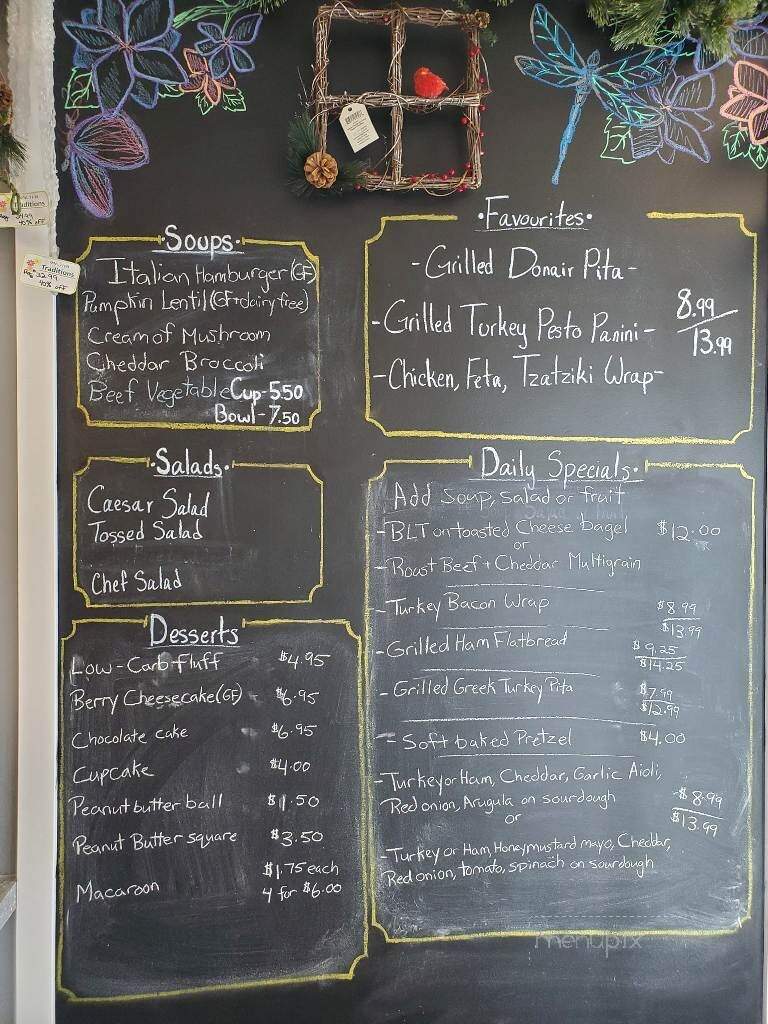 Traditions
40% off
Traditions
Reg 32.99
40% off
·Soups·
Italian Hamburger (GF)
Pumpkin Lentil (GF+dairy free)
Cream of Mushroom
Cheddar Broccoli
Beef Vegetable Cup-5.50
Bowl-7.50
·Salads·
Caesar Salad
Tossed Salad
Chef Salad
Desserts
Low-Carb fluff $4.95
Berry Cheesecake (GF) - $6.95
Chocolate cake - $6.95
Cupcake $4.00
Peanut butter ball $1.50
Peanut Butter square $3.50
$1.75 each
Macaroon 4 for $6.00
·Favourites·
-Grilled Donair Pita-
8.99
-Grilled Turkey Pesto Panini-
13.99
-Chicken, Feta, Tzatziki Wrap-
Daily Specials·
Add soup, salad or fruit
-BLT on toasted Cheese bagel $12.00
or
-Roast Beef + Cheddar Multigrain
-Turkey Bacon Wrap $8.99
$13.99
-Grilled Ham Flatbread $9.25
$14.25
-Grilled Greek Turkey Pita $7.99
$12.99
- Soft baked Pretzel $4.00
-Turkey or Ham, Cheddar, Garlic Aioli,
Red onion, Arugula on sourdough -$8.99
or $13.99
-Turkey or Ham, Honeymustard mayo, Cheddar,
Red onion, tomato, spinach on sourdough
menupix